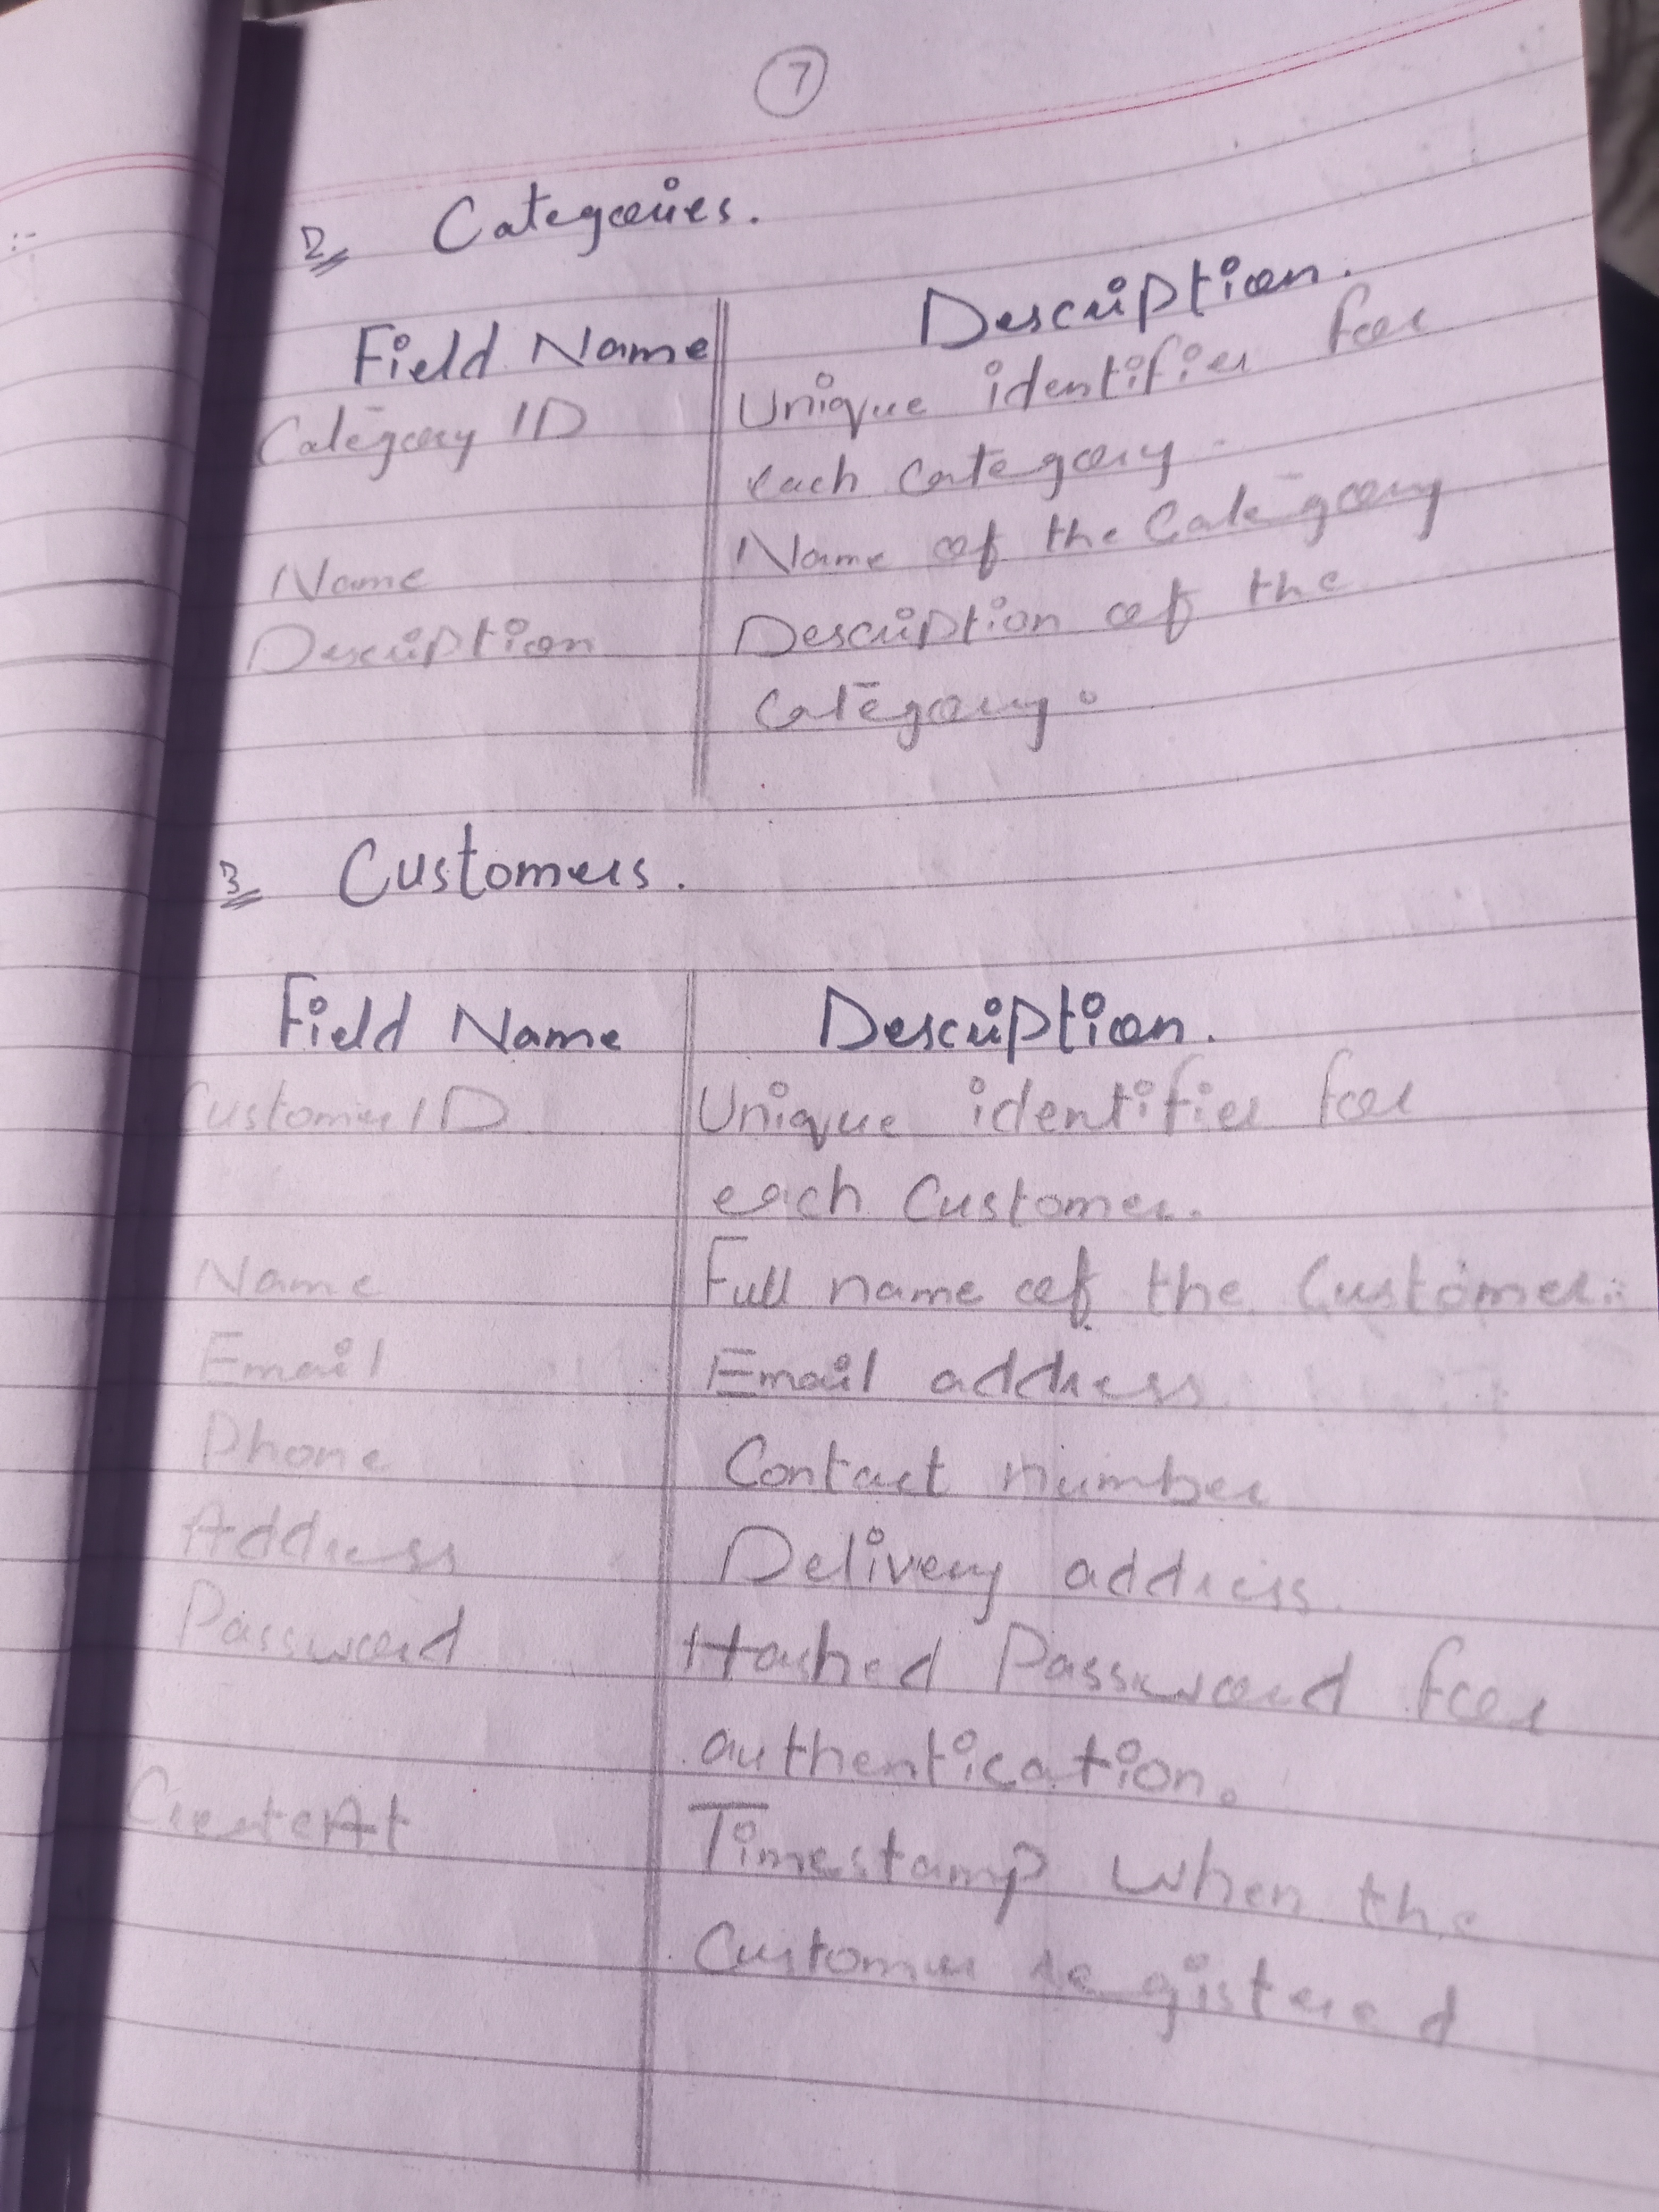 7
2 Categories.
Field Name Description.
Category ID Unique identifier for
each Category.
Name Name of the Category
Description Description of the
Category.
3 Customers.
Field Name Description.
Customer ID Unique identifier for
each Customer.
Name Full name of the Customer.
Email Email address.
Phone Contact number
Address Delivery address.
Password Hashed Password for
authentication.
CreateAt Timestamp when the
Customer registered